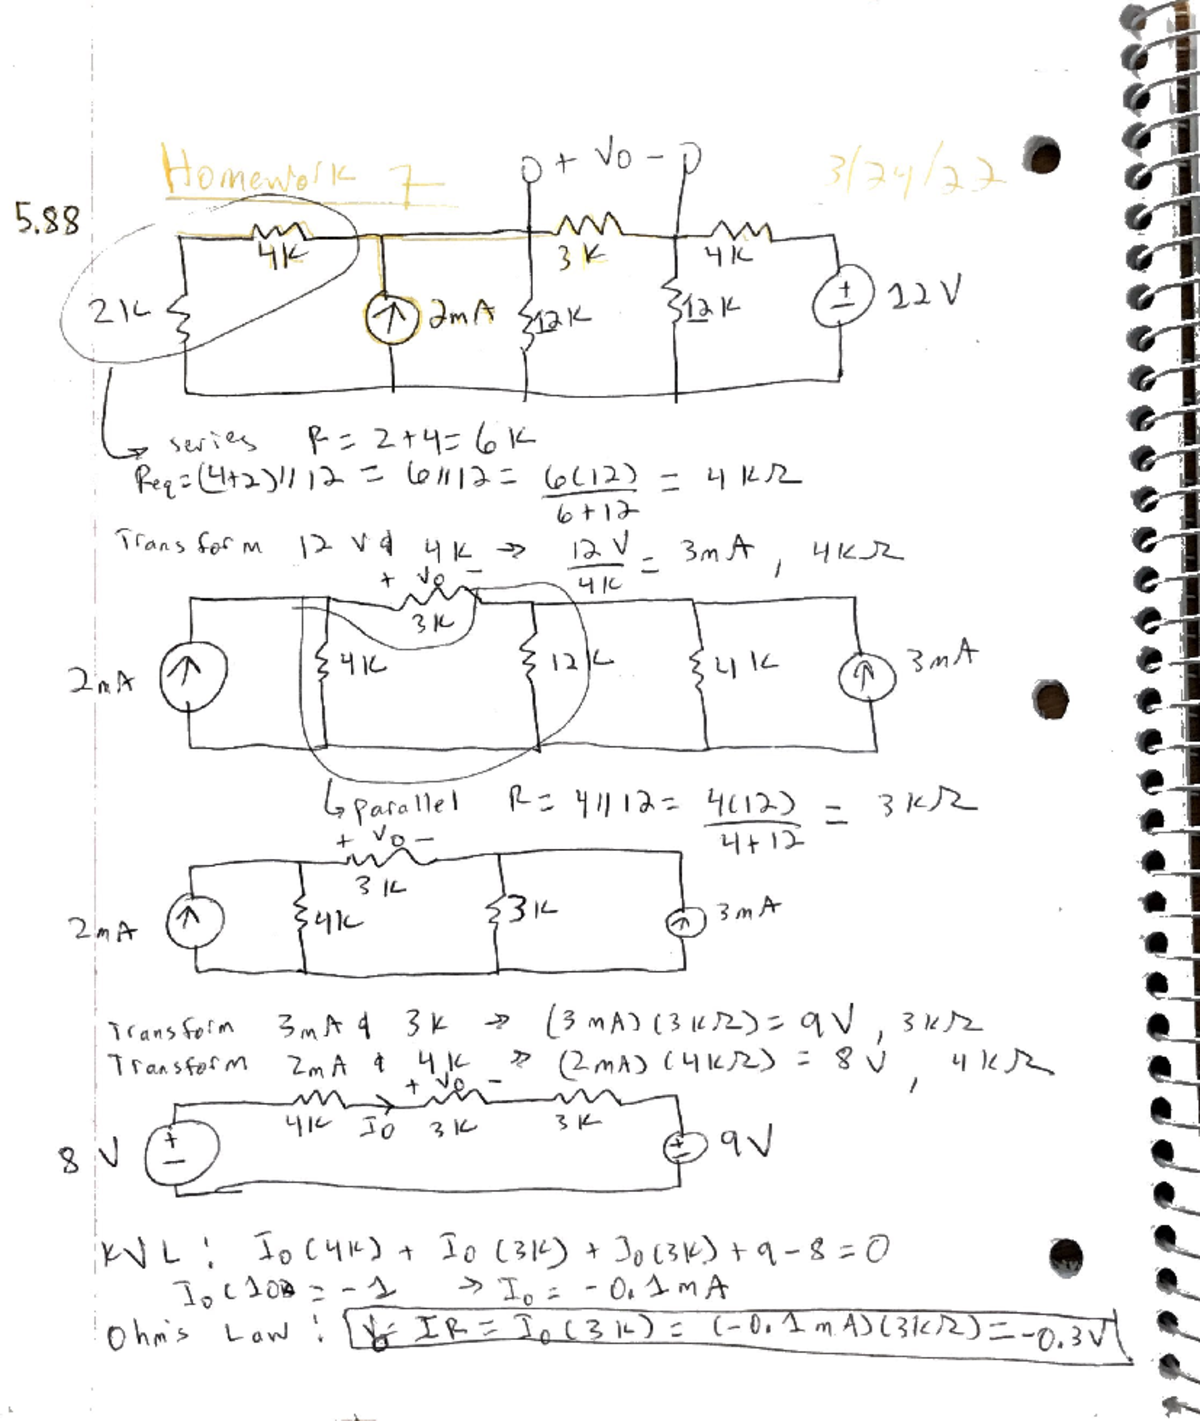 Homework 7
3/24/22
5.88
+ Vo -
4K
3K
4K
2K
2mA
12K
12K
+
-
12V
series R = 2+4 = 6K
Req = (4+2)//12 = 6//12 = 6(12)/6+12 = 4 KΩ
Transform 12 V & 4K → 12V/4K = 3mA, 4KΩ
+ Vo -
3K
2mA
4K
12K
4K
3mA
↳ parallel R = 4//12 = 4(12)/4+12 = 3KΩ
+ Vo -
3K
2mA
4K
3K
3mA
Transform 3mA & 3K → (3mA)(3KΩ) = 9V, 3KΩ
Transform 2mA & 4K → (2mA)(4KΩ) = 8V, 4KΩ
+ Vo -
4K Io 3K 3K
8 V
+
-
+
-
9V
KVL: Io(4K) + Io(3K) + Io(3K) + 9 - 8 = 0
Io(10K = -1 → Io = -0.1mA
Ohm's Law: Vo = IR = Io(3K) = (-0.1mA)(3KΩ) = -0.3V